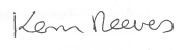 Kem Reeves